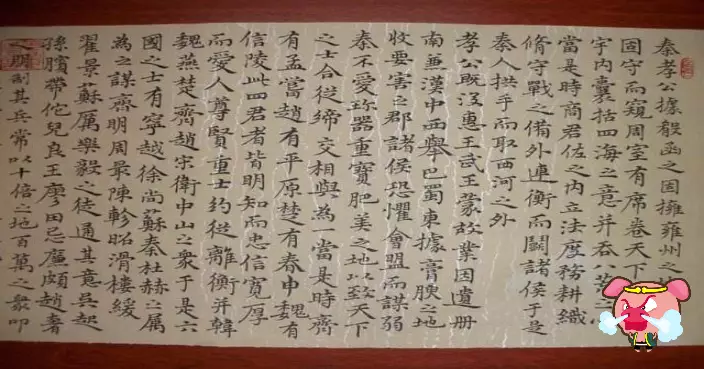 秦孝公據殽函之固擁雍州之
固守而窺周室有席卷天下
宇內囊括四海之意并吞八荒之
當是時商君佐之內立法度務耕織
脩守戰之備外連衡而鬭諸侯于是
秦人拱手而取西河之外
孝公既沒惠王武王蒙故業因遺冊
南兼漢中西舉巴蜀東據膏腴之地
收要害之郡諸侯恐懼會盟而謀弱
秦不愛珍器重寶肥美之地以致天下
之士合從締交相與為一當是時齊
有孟嘗趙有平原楚有春申魏有
信陵此四君者皆明知而忠信寬厚
而愛人尊賢重士約從離衡并韓
魏燕楚齊趙宋衛中山之衆于是六
國之士有寧越徐尚蘇秦杜赫之屬
為之謀齊明周最陳軫昭滑樓緩
翟景蘇厲樂毅之徒通其意吳起
孫臏帶佗兒良王廖田忌廉頗趙奢
之朋制其兵常以十倍之地百萬之衆叩